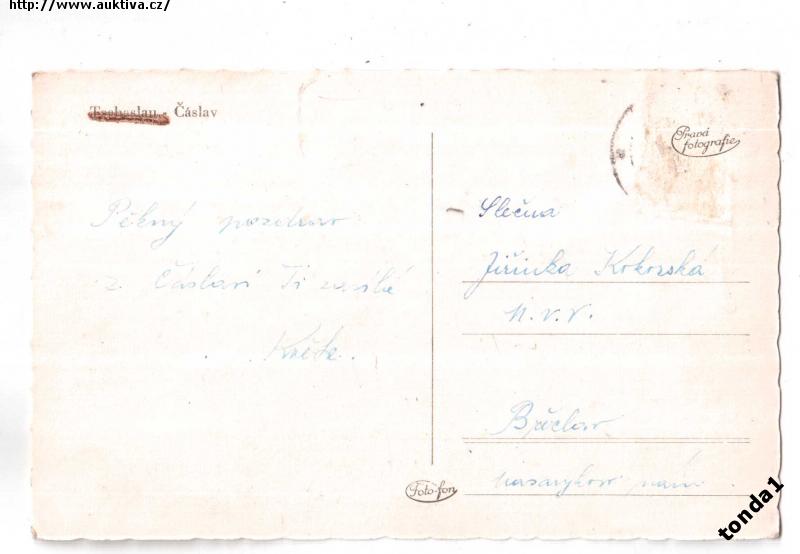 http://www.auktiva.cz/
Tschaslau - Čáslav
Pravá
fotografie
Pěkný pozdrav
z Čáslavi Ti zasílá
Květa.
Slečna
Jiřinka Kokorská
N.V.V.
Břeclav
Masarykovo nám.
Foto-fon
tonda1